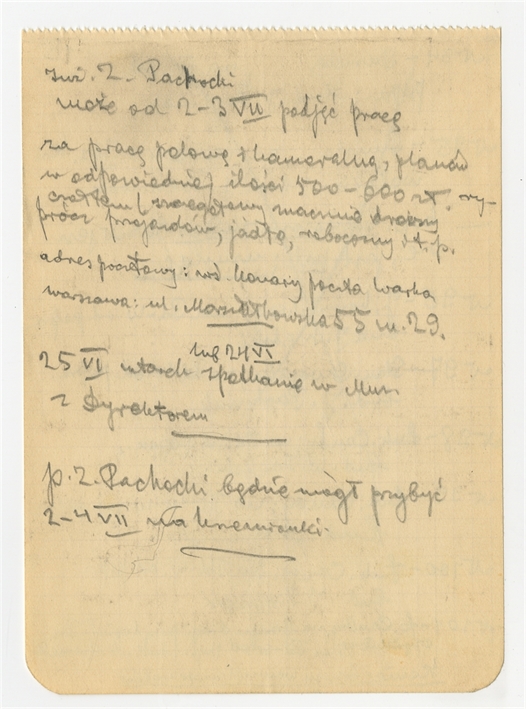 inż. Z. Pachocki
może od 2-3 VII podjąć pracę
za pracę polową i kameralną, planów
w odpowiedniej ilości 500-600 zł. ry-
czałtem (szczegółowy
prócz przejazdów, jadło, robocizny i t. p.
adres pocztowy: Konary poczta Warka
Warszawa: ul. Marszałkowska 55 m. 29.
lub 24 VI
25 VI wtorek spotkanie w Muz.
z Dyrektorem
p. Z. Pachocki będzie mógł przybyć
2-4 VII na Krzemionki.